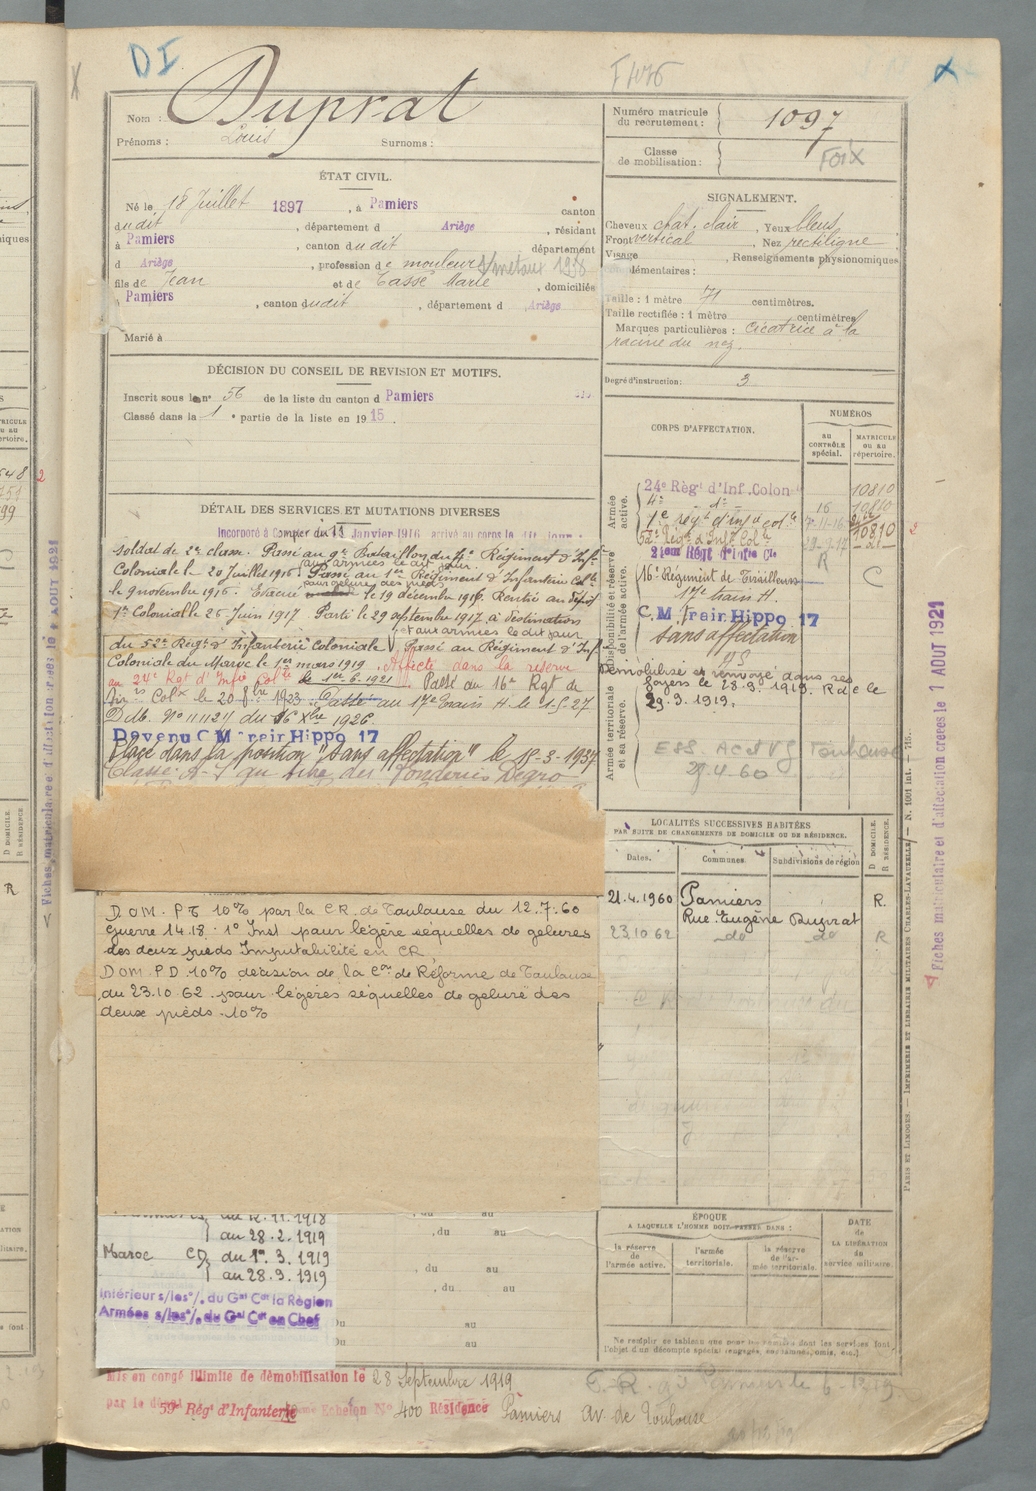 DI
F1076
Nom : Duprat
Prénoms : Louis Surnoms :
ÉTAT CIVIL.
Né le 18 Juillet 1897, à Pamiers canton
dudit, département d Ariège, résidant
à Pamiers, canton dudit département
d Ariège, profession de mouleur s/métaux 1938
fils de Jean et de Tassé Marie, domiciliés
à Pamiers, canton dudit, département d Ariège
Marié à
DÉCISION DU CONSEIL DE REVISION ET MOTIFS.
Inscrit sous le n° 56 de la liste du canton d Pamiers
Classé dans la 1e partie de la liste en 1915.
DÉTAIL DES SERVICES ET MUTATIONS DIVERSES
Incorporé à compter du 11 Janvier 1916 arrivé au corps le
soldat de 2e classe. Passé au 9e Bataillon du 4e Régiment d'Inf.
aux armées le dit jour.
Coloniale le 20 Juillet 1916. Passé au 1er Régiment d'Infanterie Colle
pour gelure des pieds
le 9 novembre 1916. Evacué le 19 décembre 1916. Rentré au dépôt
1er Colonial le 25 Juin 1917 Parti le 29 septembre 1917 à destination
et aux armées le dit jour
du 52e Régt d'Infanterie Coloniale Passé au Régiment d'Inf.
Coloniale du Maroc le 1er mars 1919. Affecté dans la réserve
au 24e Rgt d'Infie Colle le 1er.6.1921. Passé au 16e Rgt de
Tirrs Colx le 20 8bre 1923. Passé au 17e Train H. le 1-5-27
D.M. No 11127 du 16 Xbre 1926.
Devenu C M Train Hippo 17
Placé dans la position "Sans affectation" le 15-3-1937
Classé A-7 au titre des Fonderies
D.O.M. PT 10% par la CR. de Toulouse du 12.7.60
Guerre 14.18. 1° Inst pour légère séquelles de gelures
des deux pieds Imputabilité en CR.
DOM. P.D. 10% décision de la Con de Réforme de Toulouse
du 23.10.62. pour légères séquelles de gelure des
deux pieds. 10%
au 12.11.1918
au 28.2.1919
Maroc CD du 1er.3.1919
au 28.9.1919
Intérieur s/les o/. du Gal Ct la Région
Armées s/les o/. du Gal Ct en Chef
, du au
, du au
, du au
, du au
Du au
au
Mis en congé illimité de démobilisation le 28 Septembre 1919
par le dépôt 59e Rég' d'Infanterie Echelon N° 400 Résidence Pamiers av. de Toulouse
Numéro matricule du recrutement : 1097
Classe de mobilisation : Foix
SIGNALEMENT.
Cheveux chât. clair, Yeux bleus
Front vertical, Nez rectiligne
Visage , Renseignements physionomiques
complémentaires :
Taille : 1 mètre 71 centimètres.
Taille rectifiée : 1 mètre centimètres
Marques particulières : Cicatrice à la
racine du nez.
Degré d'instruction : 3
CORPS D'AFFECTATION.
NUMÉROS
AU CONTRÔLE spécial.
MATRICULE OU AU répertoire.
Armée active.
24e Régt d'Inf. Colon 10810
4e do 16 10810
1e régt d'infie colle 7-11-16
52e Régt d'Infie Colle 28-9-17 10810
21eme Régt d'Infie Cle R
Disponibilité et réserve de l'armée active.
16e Régiment de Tirailleurs C
17e train H.
C M Train Hippo 17
Sans affectation
Démobilisé et renvoyé dans ses
foyers le 28.9.1919. R de le
29.9.1919.
Armée territoriale et sa réserve.
ESS. ACTVG Toulouse
29.4.60
LOCALITÉS SUCCESSIVES HABITÉES
PAR SUITE DE CHANGEMENTS DE DOMICILE OU DE RÉSIDENCE.
Dates. Communes. Subdivisions de région D DOMICILE. R RÉSIDENCE.
21.4.1960 Pamiers R.
Rue Eugène Duprat
23.10.62 _do_ _do_ R
ÉPOQUE
A LAQUELLE L'HOMME DOIT PASSER DANS :
la réserve de l'armée active.
l'armée territoriale.
la réserve de l'armée territoriale.
DATE de LA LIBÉRATION du service militaire.
Ne remplir ce tableau que pour les hommes dont les services font
l'objet d'un décompte spécial (engagés, omis, etc.)
PARIS ET LIMOGES. — IMPRIMERIE ET LIBRAIRIE MILITAIRES CHARLES-LAVAUZELLE. — N. 1001 int. — 715.
Fiches matriculaire et d'affectation créées le 1 AOUT 1921
Fiches matriculaire et d'affectation créées le AOUT 1921